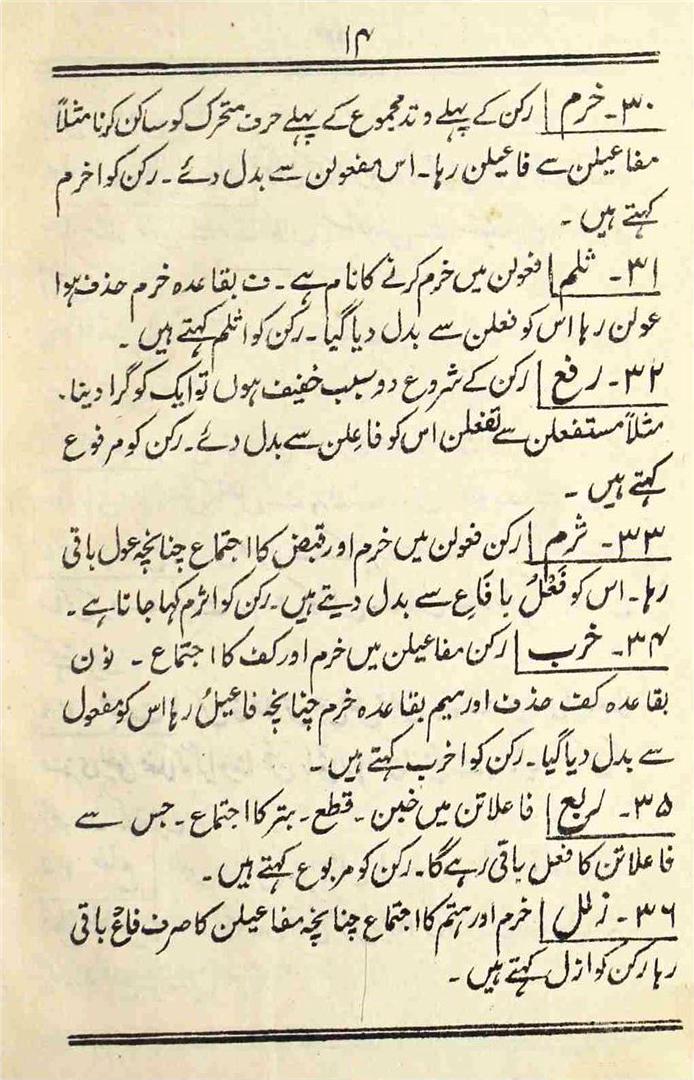 ۱۴
۳۰۔ خرم | رکن کے پہلے وتد مجموع کے پہلے حرف متحرک کو ساکن کرنا مثلاً
مفاعیلن سے فاعیلن رہا۔ اس مفعولن سے بدل دئے۔ رکن کو اخرم
کہتے ہیں۔
۳۱۔ ثلم | فعولن میں خرم کرنے کا نام ہے۔ ف بقاعدہ خرم حذف ہوا
عولن رہا اس کو فعلن سے بدل دیا گیا۔ رکن کو اثلم کہتے ہیں۔
۳۲۔ رفع | رکن کے شروع دو سبب خفیف ہوں تو ایک کو گرا دینا۔
مثلاً مستفعلن سے تفعلن اس کو فاعِلن سے بدل دئے۔ رکن کو مرفوع
کہتے ہیں۔
۳۳۔ ثرم | رکن فعولن میں خرم اور قبض کا اجتماع چنانچہ عول باقی
رہا۔ اس کو فَعْلُ یا فَاعِ سے بدل دیتے ہیں۔ رکن کو اثرم کہا جاتا ہے۔
۳۴۔ خرب | رکن مفاعیلن میں خرم اور کف کا اجتماع۔ نون
بقاعدہ کف حذف اور میم بقاعدہ خرم چنانچہ فاعیلُ رہا اس کو مفعول
سے بدل دیا گیا۔ رکن کو اخرب کہتے ہیں۔
۳۵۔ ربع | فاعلاتن میں خبن۔ قطع۔ بتر کا اجتماع۔ جس سے
فاعلاتن کا فعل باقی رہے گا۔ رکن کو مربوع کہتے ہیں۔
۳۶۔ زلل | خرم اور ہتم کا اجتماع چنانچہ مفاعیلن کا صرف فاعْ باقی
رہا رکن کو ازل کہتے ہیں۔